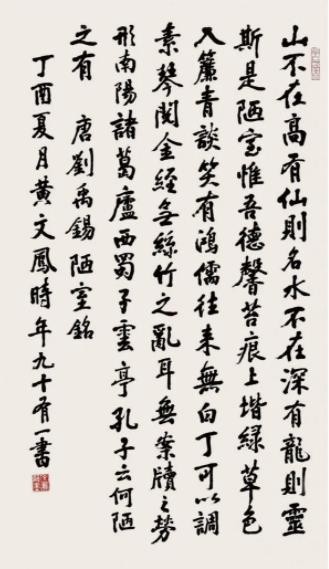 山不在高有仙則名水不在深有龍則靈
斯是陋室惟吾德馨苔痕上堦緑草色
入簾青談笑有鴻儒往来無白丁可以調
素琴閱金經無絲竹之亂耳無案牘之勞
形南陽諸葛廬西蜀子雲亭孔子云何陋
之有 唐劉禹錫陋室銘
丁酉夏月黃文鳳時年九十有一書